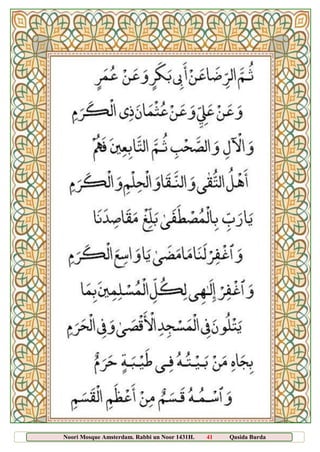 ثُمَّ الرِّضَا عَنْ أَبِي بَكْرٍ وَعَنْ عُمَرٍ
وَعَنْ عَلِيٍّ وَعَنْ عُثْمَانَ ذِي الْكَرَمِ
وَالْآلِ وَالصَّحْبِ ثُمَّ التَّابِعِينَ فَهُمْ
أَهْلُ التُّقَى وَالنَّقَا وَالْحِلْمِ وَالْكَرَمِ
يَارَبِّ بِالْمُصْطَفَى بَلِّغْ مَقَاصِدَنَا
وَٱغْفِرْ لَنَا مَا مَضَى يَا وَاسِعَ الْكَرَمِ
وَٱغْفِرْ إِلَٰهِي لِكُلِّ الْمُسْلِمِينَ بِمَا
يَتْلُونَ فِي الْمَسْجِدِ الْأَقْصَى وَفِي الْحَرَمِ
بِجَاهِ مَنْ بَيْتُهُ فِي طَيْبَةٍ حَرَمٌ
وَٱسْمُهُ قَسَمٌ مِنْ أَعْظَمِ الْقَسَمِ
Noori Mosque Amsterdam. Rabbi un Noor 1431H. 41 Qasida Burda